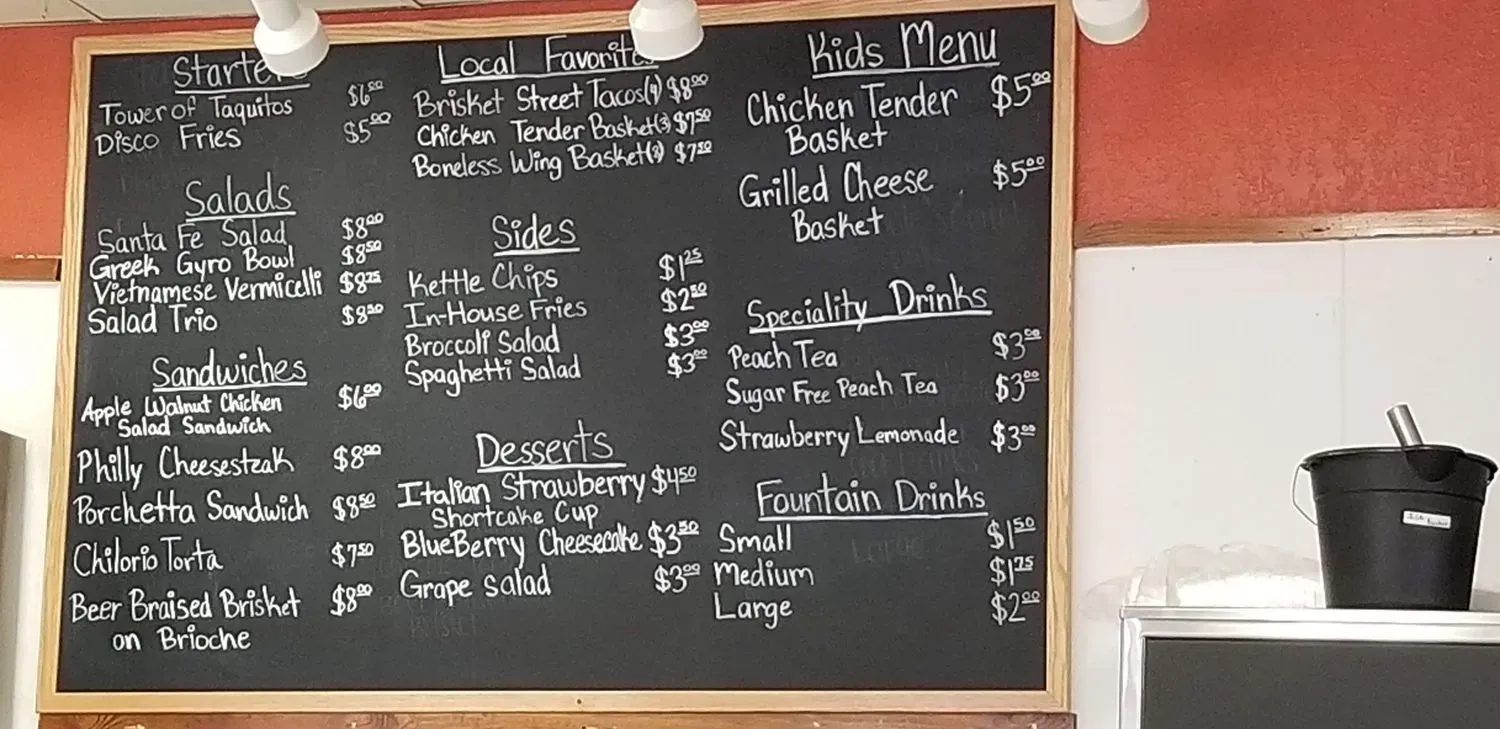 Starters
Tower of Taquitos $6.00
Disco Fries $5.00
Salads
Santa Fe Salad $8.00
Greek Gyro Bowl $8.50
Vietnamese Vermicelli $8.25
Salad Trio $8.50
Sandwiches
Apple Walnut Chicken $6.00
Salad Sandwich
Philly Cheesesteak $8.00
Porchetta Sandwich $8.50
Chilorio Torta $7.50
Beer Braised Brisket $8.00
on Brioche
Local Favorites
Brisket Street Tacos(4) $8.00
Chicken Tender Basket(3) $7.50
Boneless Wing Basket $7.50
Sides
Kettle Chips $1.25
In-House Fries $2.50
Broccoli Salad $3.00
Spaghetti Salad $3.00
Desserts
Italian Strawberry $4.50
Shortcake Cup
BlueBerry Cheesecake $3.50
Grape salad $3.00
Kids Menu
Chicken Tender $5.00
Basket
Grilled Cheese $5.00
Basket
Speciality Drinks
Peach Tea $3.00
Sugar Free Peach Tea $3.00
Strawberry Lemonade $3.00
Fountain Drinks
Small $1.50
Medium $1.75
Large $2.00